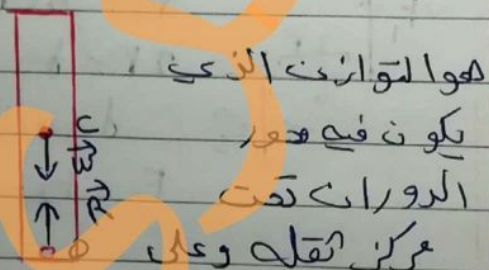 هوا لتوازن الذي
يكون فيه محور
الدوران تحت
مركز ثقله وعلى
C
W
R